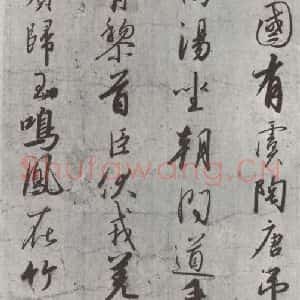 國有虞陶唐弔
湯坐朝問道
黎首臣伏戎羌
歸王鳴鳳在竹
Shufawang.CN